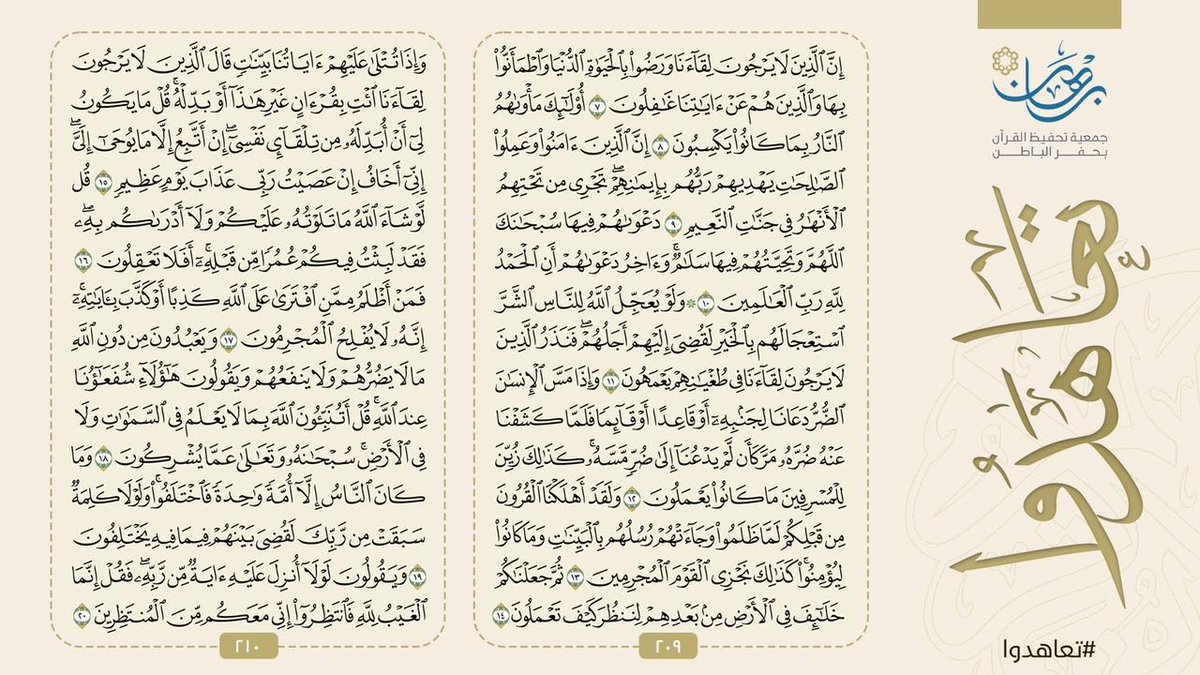 برهان
جمعية تحفيظ القرآن
بحفر الباطن
تعاهدوا
#تعاهدوا
إِنَّ ٱلَّذِينَ لَا يَرْجُونَ لِقَآءَنَا وَرَضُوا۟ بِٱلْحَيَوٰةِ ٱلدُّنْيَا وَٱطْمَأَنُّوا۟
بِهَا وَٱلَّذِينَ هُمْ عَنْ ءَايَٰتِنَا غَٰفِلُونَ ٧ أُو۟لَٰٓئِكَ مَأْوَىٰهُمُ
ٱلنَّارُ بِمَا كَانُوا۟ يَكْسِبُونَ ٨ إِنَّ ٱلَّذِينَ ءَامَنُوا۟ وَعَمِلُوا۟
ٱلصَّٰلِحَٰتِ يَهْدِيهِمْ رَبُّهُم بِإِيمَٰنِهِمْ ۖ تَجْرِى مِن تَحْتِهِمُ
ٱلْأَنْهَٰرُ فِى جَنَّٰتِ ٱلنَّعِيمِ ٩ دَعْوَىٰهُمْ فِيهَا سُبْحَٰنَكَ
ٱللَّهُمَّ وَتَحِيَّتُهُمْ فِيهَا سَلَٰمٌ ۚ وَءَاخِرُ دَعْوَىٰهُمْ أَنِ ٱلْحَمْدُ
لِلَّهِ رَبِّ ٱلْعَٰلَمِينَ ١٠ ۞ وَلَوْ يُعَجِّلُ ٱللَّهُ لِلنَّاسِ ٱلشَّرَّ
ٱسْتِعْجَالَهُم بِٱلْخَيْرِ لَقُضِىَ إِلَيْهِمْ أَجَلُهُمْ ۖ فَنَذَرُ ٱلَّذِينَ
لَا يَرْجُونَ لِقَآءَنَا فِى طُغْيَٰنِهِمْ يَعْمَهُونَ ١١ وَإِذَا مَسَّ ٱلْإِنسَٰنَ
ٱلضُّرُّ دَعَانَا لِجَنۢبِهِۦٓ أَوْ قَاعِدًا أَوْ قَآئِمًا فَلَمَّا كَشَفْنَا
عَنْهُ ضُرَّهُۥ مَرَّ كَأَن لَّمْ يَدْعُنَآ إِلَىٰ ضُرٍّ مَّسَّهُۥ ۚ كَذَٰلِكَ زُيِّنَ
لِلْمُسْرِفِينَ مَا كَانُوا۟ يَعْمَلُونَ ١٢ وَلَقَدْ أَهْلَكْنَا ٱلْقُرُونَ
مِن قَبْلِكُمْ لَمَّا ظَلَمُوا۟ وَجَآءَتْهُمْ رُسُلُهُم بِٱلْبَيِّنَٰتِ وَمَا كَانُوا۟
لِيُؤْمِنُوا۟ ۚ كَذَٰلِكَ نَجْزِى ٱلْقَوْمَ ٱلْمُجْرِمِينَ ١٣ ثُمَّ جَعَلْنَٰكُمْ
خَلَٰٓئِفَ فِى ٱلْأَرْضِ مِنۢ بَعْدِهِمْ لِنَنظُرَ كَيْفَ تَعْمَلُونَ ١٤
٢٠٩
وَإِذَا تُتْلَىٰ عَلَيْهِمْ ءَايَاتُنَا بَيِّنَٰتٍ قَالَ ٱلَّذِينَ لَا يَرْجُونَ
لِقَآءَنَا ٱئْتِ بِقُرْءَانٍ غَيْرِ هَٰذَآ أَوْ بَدِّلْهُ ۚ قُلْ مَا يَكُونُ
لِىٓ أَنْ أُبَدِّلَهُۥ مِن تِلْقَآئِ نَفْسِىٓ ۖ إِنْ أَتَّبِعُ إِلَّا مَا يُوحَىٰٓ إِلَىَّ ۖ
إِنِّىٓ أَخَافُ إِنْ عَصَيْتُ رَبِّى عَذَابَ يَوْمٍ عَظِيمٍ ١٥ قُل
لَّوْ شَآءَ ٱللَّهُ مَا تَلَوْتُهُۥ عَلَيْكُمْ وَلَآ أَدْرَىٰكُم بِهِۦ ۖ
فَقَدْ لَبِثْتُ فِيكُمْ عُمُرًا مِّن قَبْلِهِۦٓ ۚ أَفَلَا تَعْقِلُونَ ١٦
فَمَنْ أَظْلَمُ مِمَّنِ ٱفْتَرَىٰ عَلَى ٱللَّهِ كَذِبًا أَوْ كَذَّبَ بِـَٔايَٰتِهِۦٓ ۚ
إِنَّهُۥ لَا يُفْلِحُ ٱلْمُجْرِمُونَ ١٧ وَيَعْبُدُونَ مِن دُونِ ٱللَّهِ
مَا لَا يَضُرُّهُمْ وَلَا يَنفَعُهُمْ وَيَقُولُونَ هَٰٓؤُلَآءِ شُفَعَٰٓؤُنَا
عِندَ ٱللَّهِ ۚ قُلْ أَتُنَبِّـُٔونَ ٱللَّهَ بِمَا لَا يَعْلَمُ فِى ٱلسَّمَٰوَٰتِ وَلَا
فِى ٱلْأَرْضِ ۚ سُبْحَٰنَهُۥ وَتَعَٰلَىٰ عَمَّا يُشْرِكُونَ ١٨ وَمَا
كَانَ ٱلنَّاسُ إِلَّآ أُمَّةً وَٰحِدَةً فَٱخْتَلَفُوا۟ ۚ وَلَوْلَا كَلِمَةٌ
سَبَقَتْ مِن رَّبِّكَ لَقُضِىَ بَيْنَهُمْ فِيمَا فِيهِ يَخْتَلِفُونَ
١٩ وَيَقُولُونَ لَوْلَآ أُنزِلَ عَلَيْهِ ءَايَةٌ مِّن رَّبِّهِۦ ۖ فَقُلْ إِنَّمَا
ٱلْغَيْبُ لِلَّهِ فَٱنتَظِرُوٓا۟ إِنِّى مَعَكُم مِّنَ ٱلْمُنتَظِرِينَ ٢٠
٢١٠